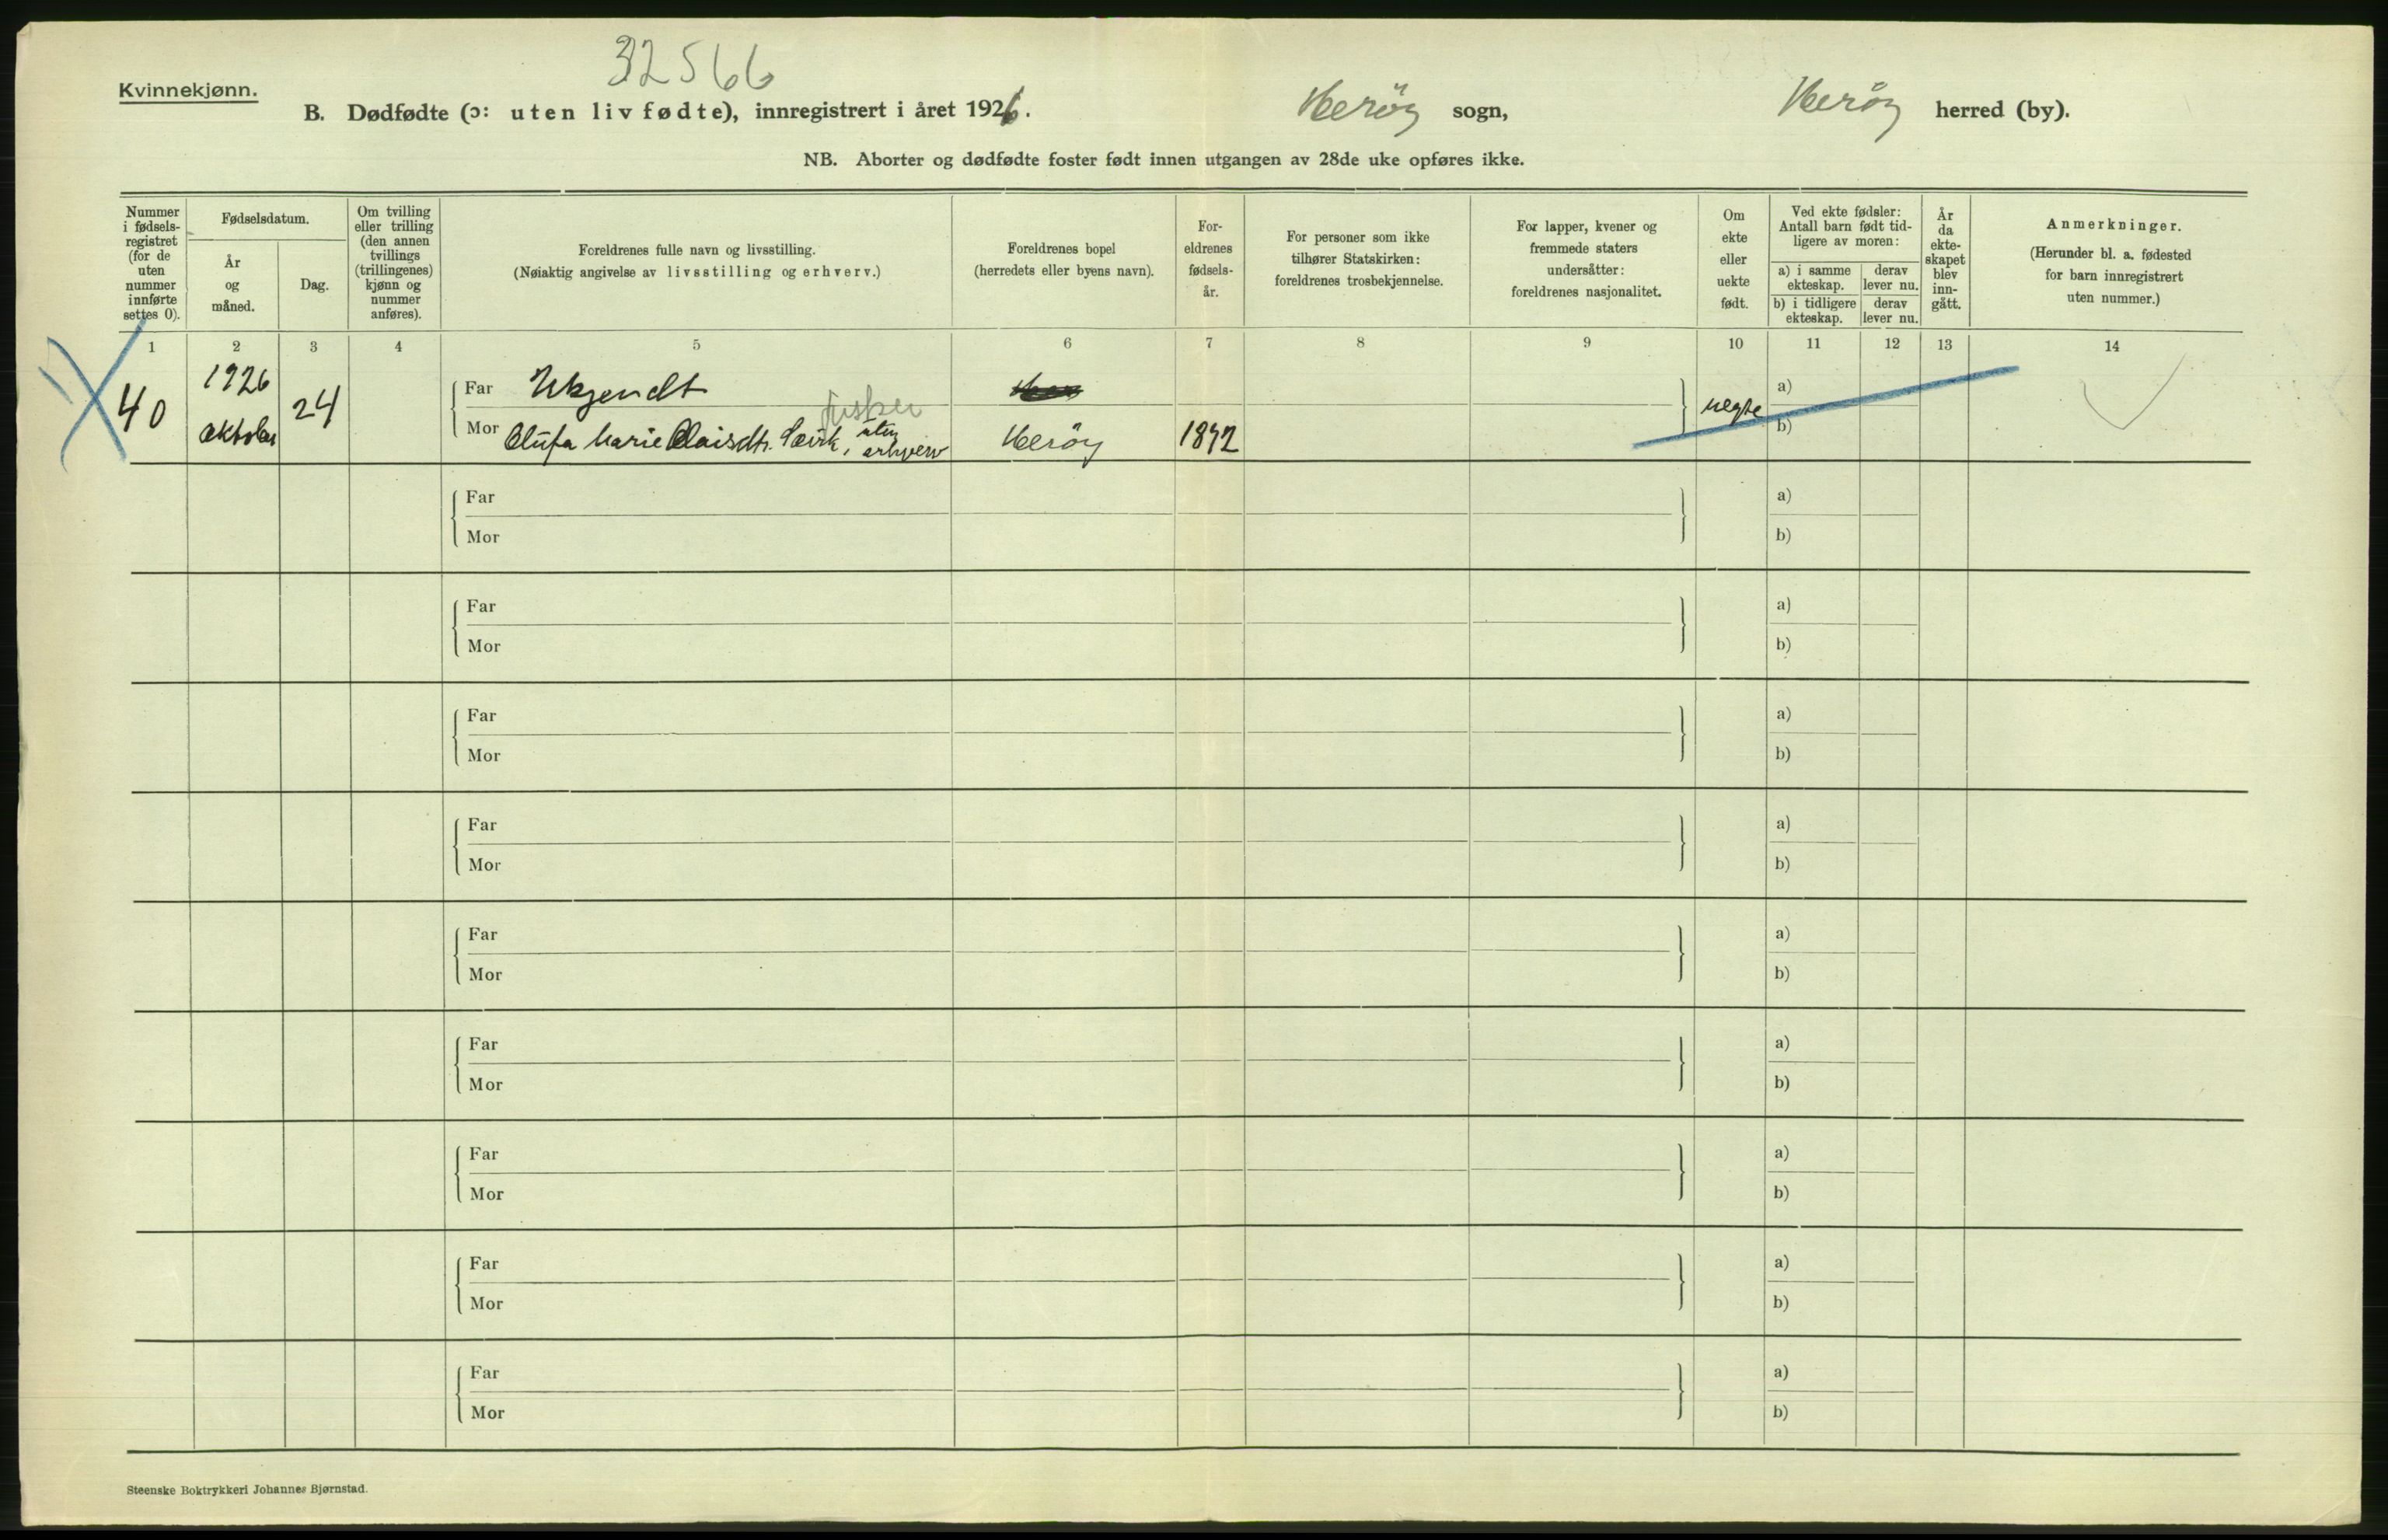 32566
Kvinnekjønn.
B. Dødfødte (ɔ: uten liv fødte), innregistrert i året 1926.
Herøy sogn,
Herøy herred (by).
NB. Aborter og dødfødte foster født innen utgangen av 28de uke opføres ikke.
Nummer
i fødsels-
registret
(for de
uten
nummer
innførte
settes 0).
Fødselsdatum.
År
og
måned.
Dag.
Om tvilling
eller trilling
(den annen
tvillings
(trillingenes)
kjønn og
nummer
anføres).
Foreldrenes fulle navn og livsstilling.
(Nøiaktig angivelse av livsstilling og erhverv.)
Foreldrenes bopel
(herredets eller byens navn).
For-
eldrenes
fødsels-
år.
For personer som ikke
tilhører Statskirken:
foreldrenes trosbekjennelse.
For lapper, kvener og
fremmede staters
undersåtter:
foreldrenes nasjonalitet.
Om
ekte
eller
uekte
født.
Ved ekte fødsler:
Antall barn født tid-
ligere av moren:
a) i samme
ekteskap.
derav
lever nu.
b) i tidligere
ekteskap.
derav
lever nu.
År
da
ekte-
skapet
blev
inn-
gått.
Anmerkninger.
(Herunder bl. a. fødested
for barn innregistrert
uten nummer.)
1 2 3 4 5 6 7 8 9 10 11 12 13 14
40
1926
oktober
24
Far Ukjendt
Mor Olufa Marie uten
erhverv
Herøy
1892
uegte
a)
b)
Far
a)
Mor
b)
Far
a)
Mor
b)
Far
a)
Mor
b)
Far
a)
Mor
b)
Far
a)
Mor
b)
Far
a)
Mor
b)
Far
a)
Mor
b)
Far
a)
Mor
b)
Far
a)
Mor
b)
Steenske Boktrykkeri Johannes Bjørnstad.